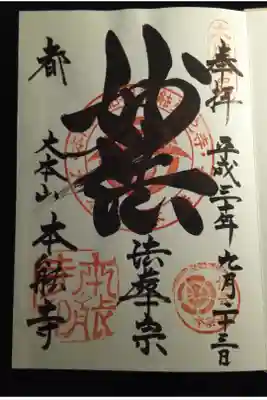 奉拝
平成三十年九月二十三日
妙法
法華宗
都
大本山
本能寺